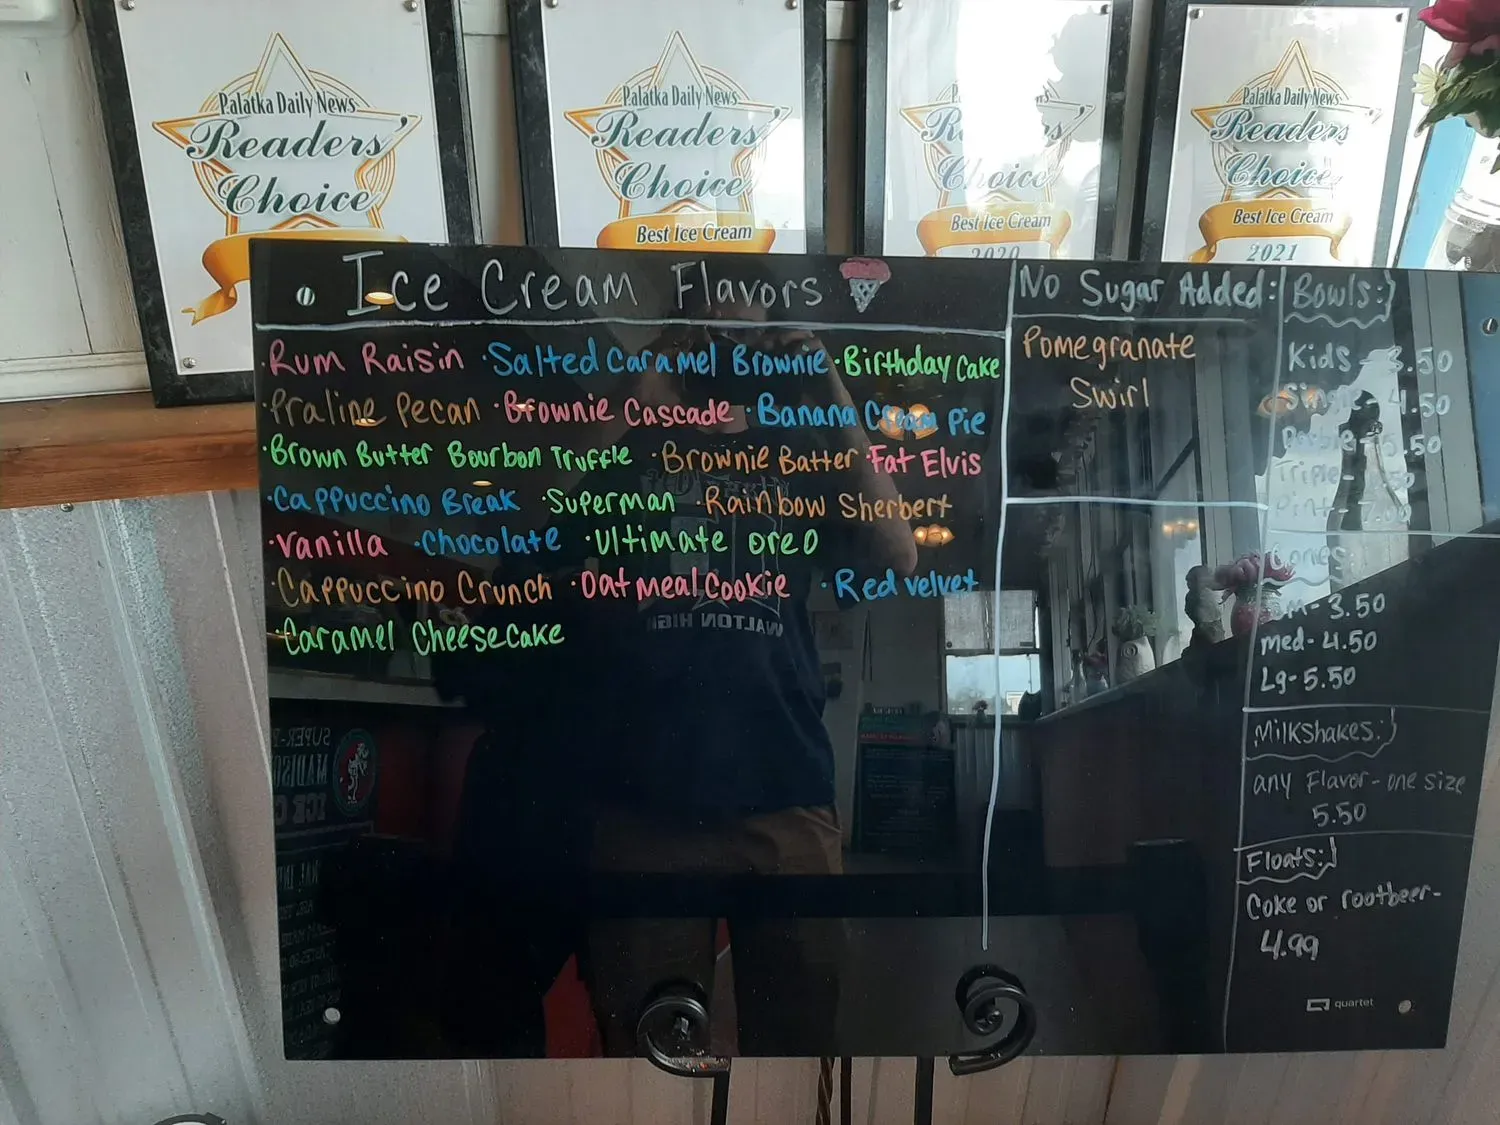 Palatka Daily News
Readers'
Choice
Palatka Daily News
Readers'
Choice
Best Ice Cream
Choice
Best Ice Cream
2020
Palatka Daily News
Readers'
Choice
Best Ice Cream
2021
Ice Cream Flavors
·Rum Raisin ·Salted Caramel Brownie ·Birthday Cake
·Praline Pecan ·Brownie Cascade ·Banana Cream Pie
·Brown Butter Bourbon Truffle ·Brownie Batter ·Fat Elvis
·Cappuccino Break ·Superman ·Rainbow Sherbert
·Vanilla ·Chocolate ·Ultimate Oreo
·Cappuccino Crunch ·Oatmeal Cookie ·Red velvet
·Caramel Cheesecake
No Sugar Added:
Pomegranate
Swirl
Bowls:
Kids - 3.50
Single 4.50
Double - 5.50
Triple -
Pint -
Cones:
sm- 3.50
med- 4.50
Lg- 5.50
Milkshakes:
any Flavor - one size
5.50
Floats:
Coke or rootbeer-
4.99
quartet
WALTON HIGH